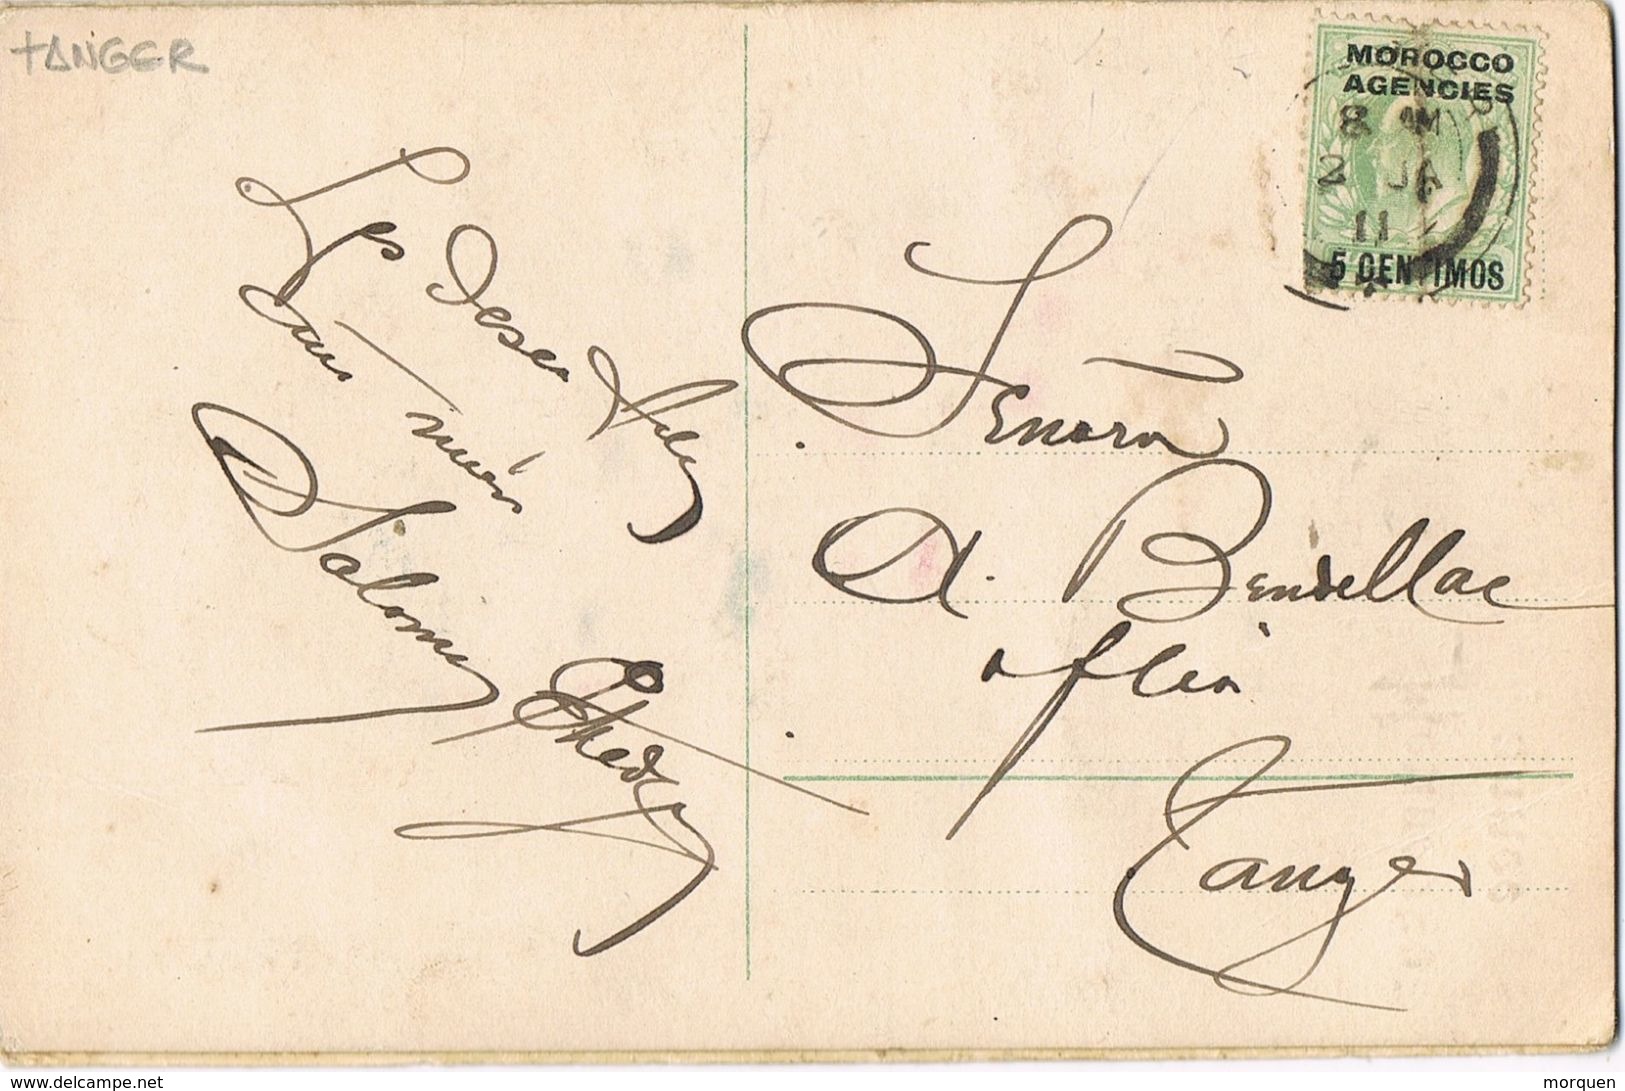 TANGER
MOROCCO
AGENCIES
8 AM
2 JA
11
5 CENTIMOS
Les desea feliz
Salomon
Señora
A. Bendellac
Tanger
www.delcampe.net
morquen